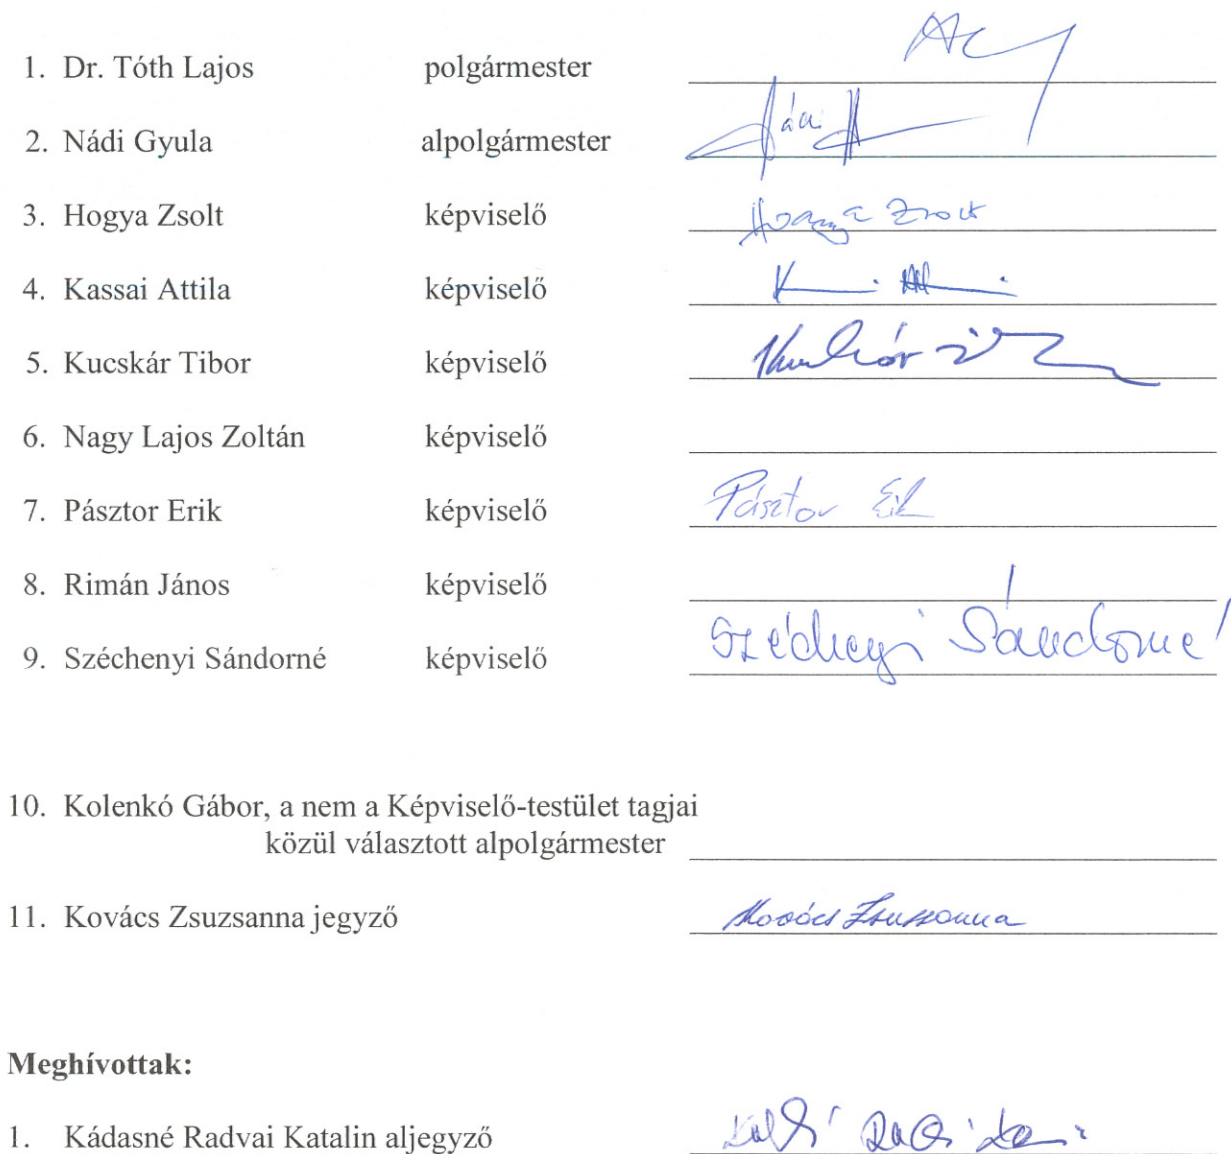 1. Dr. Tóth Lajos polgármester
2. Nádi Gyula alpolgármester
3. Hogya Zsolt képviselő Hogya Zsolt
4. Kassai Attila képviselő
5. Kucskár Tibor képviselő
6. Nagy Lajos Zoltán képviselő
7. Pásztor Erik képviselő Pásztor Erik
8. Rimán János képviselő
9. Széchenyi Sándorné képviselő Széchenyi Sándorné
10. Kolenkó Gábor, a nem a Képviselő-testület tagjai
közül választott alpolgármester
11. Kovács Zsuzsanna jegyző Kovács Zsuzsanna
Meghívottak:
1. Kádasné Radvai Katalin aljegyző